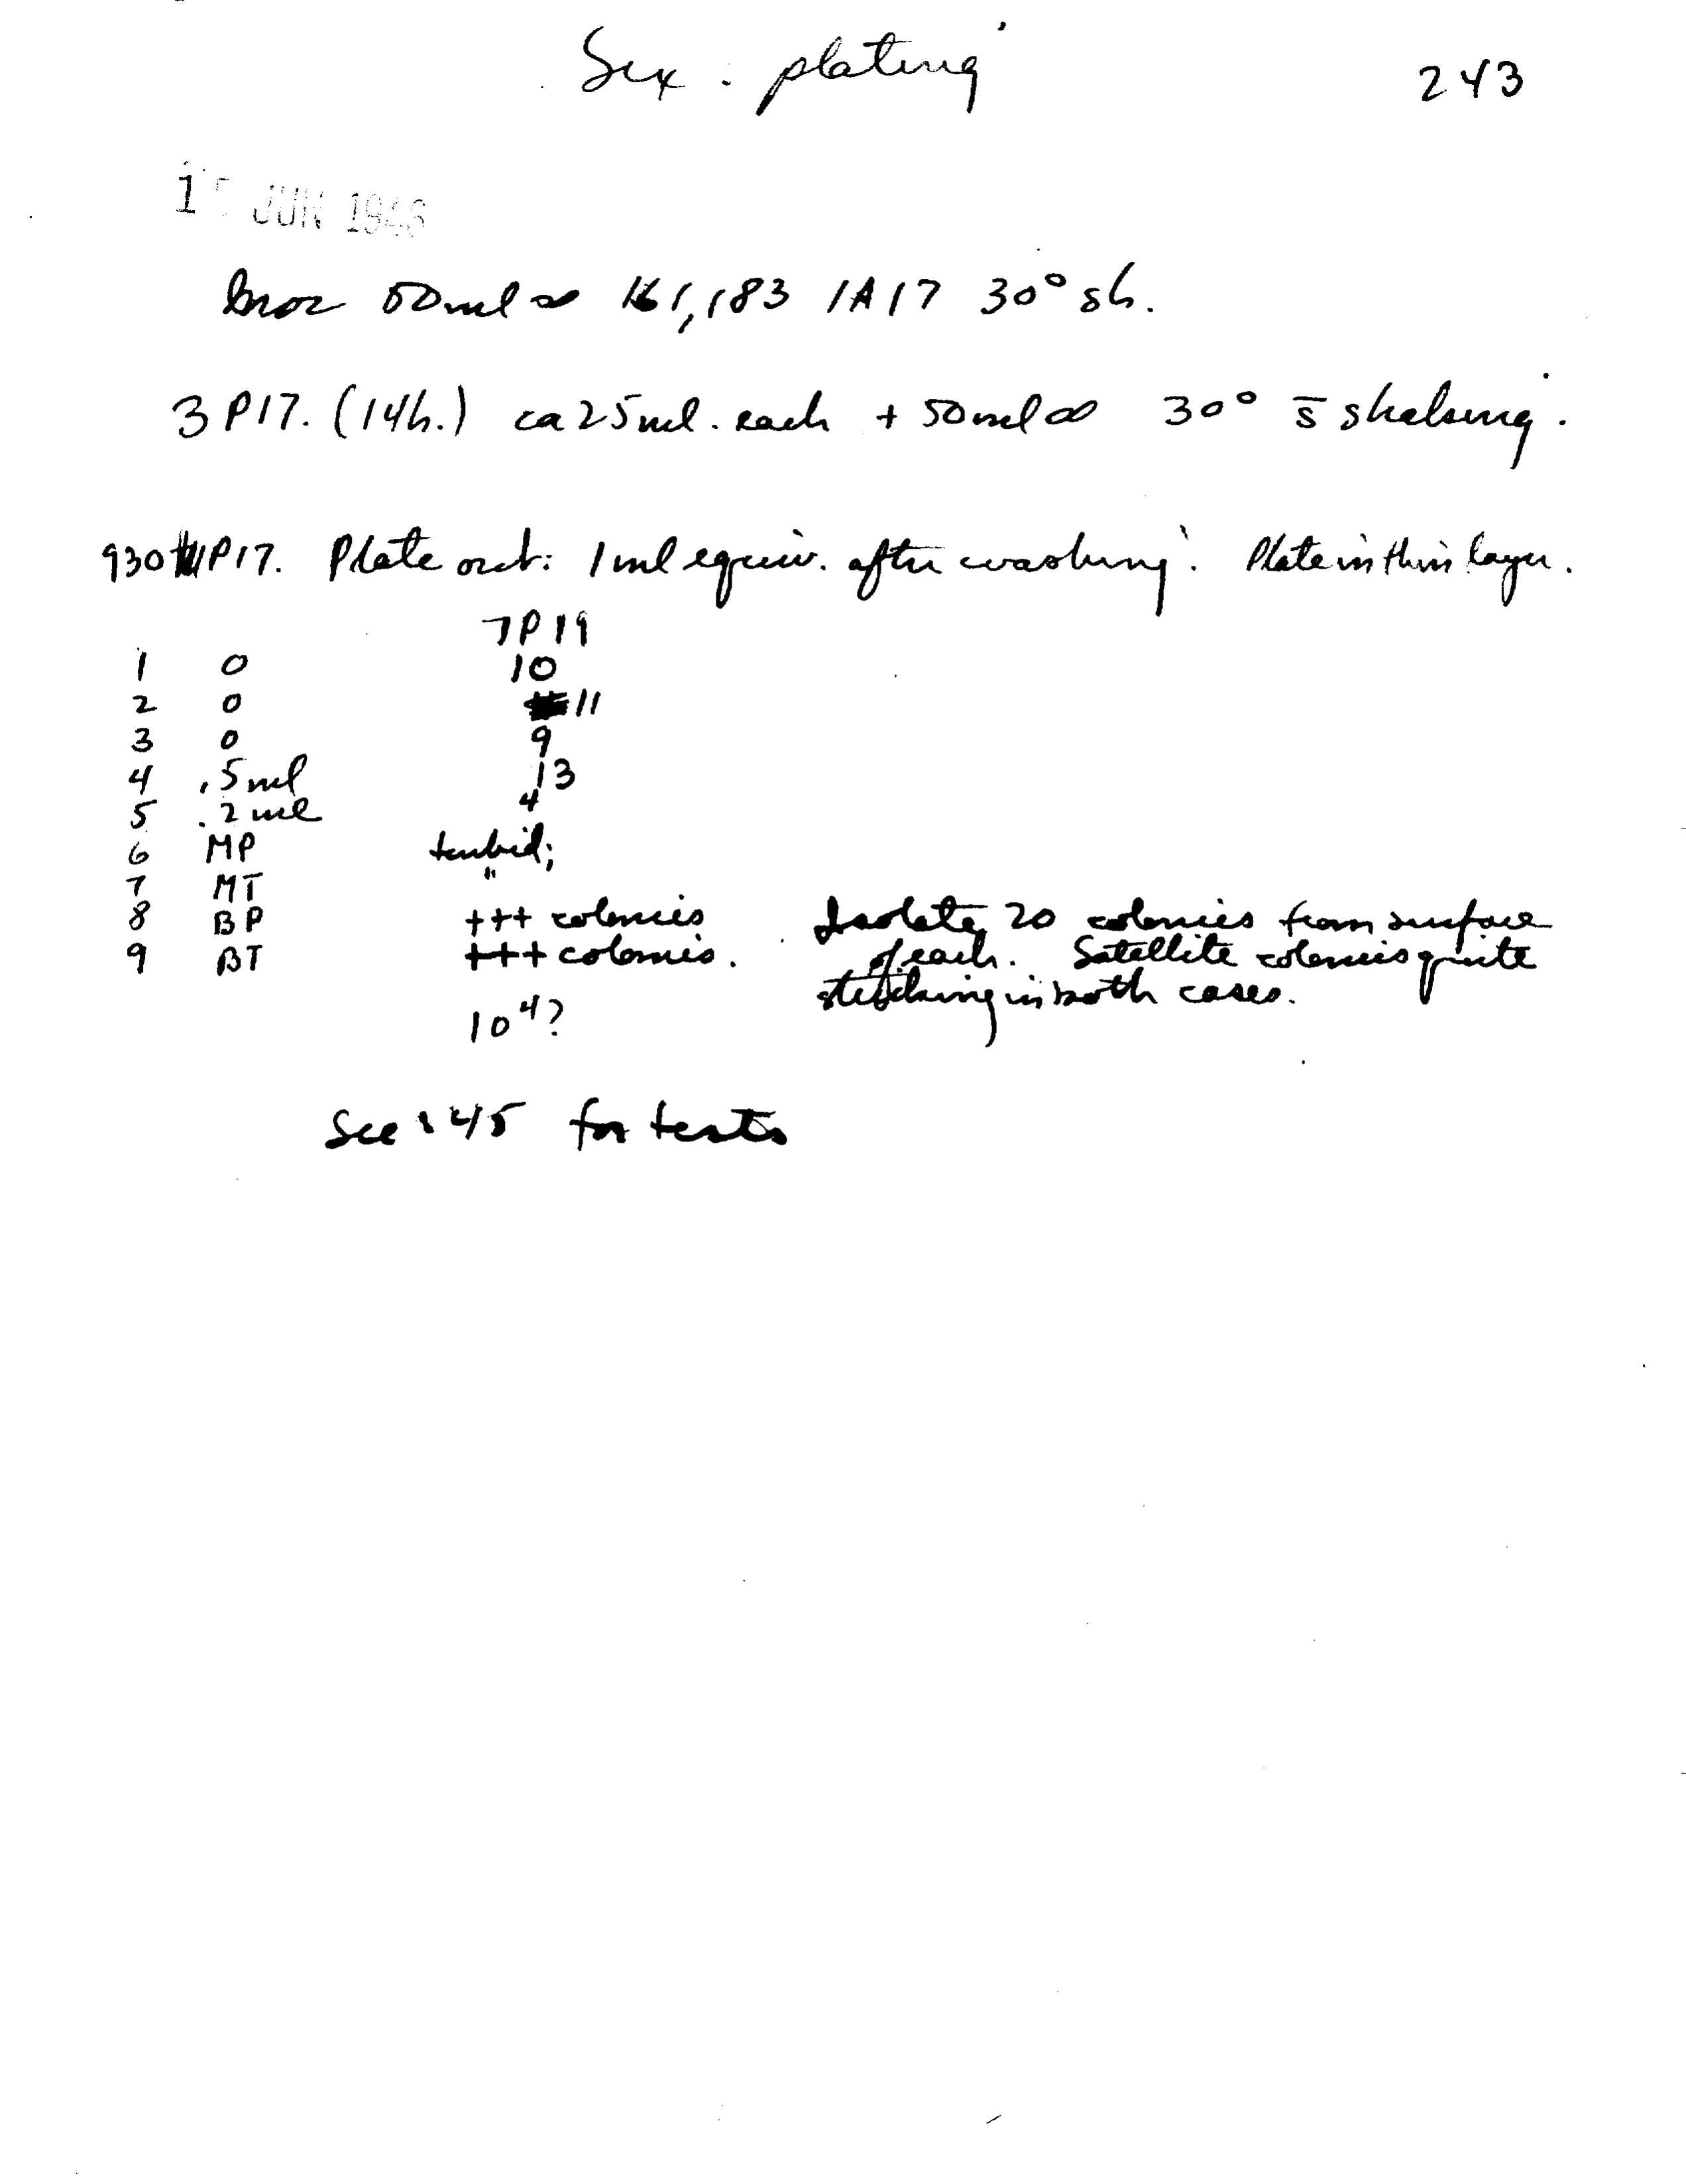 Sex : plating
243
JUN 1946
50 ml ∞ 161, 183 1A17 30° sh.
3 P17. (14h.) ca 25 ml. each + 50 ml ∞ 30° s̄ shaking.
930 P17. Plate out: 1 ml equiv. after washing. Plate in thin layer.
7P19
1 0 10
2 0 11
3 0 9
4 .5 ml 13
5 .2 ml 4
6 MP turbid;
7 MT "
8 BP +++ colonies Isolate 20 colonies from surface
9 BT +++ colonies. of each. Satellite colonies quite
striking in both cases.
10⁴?
See 45 for tests